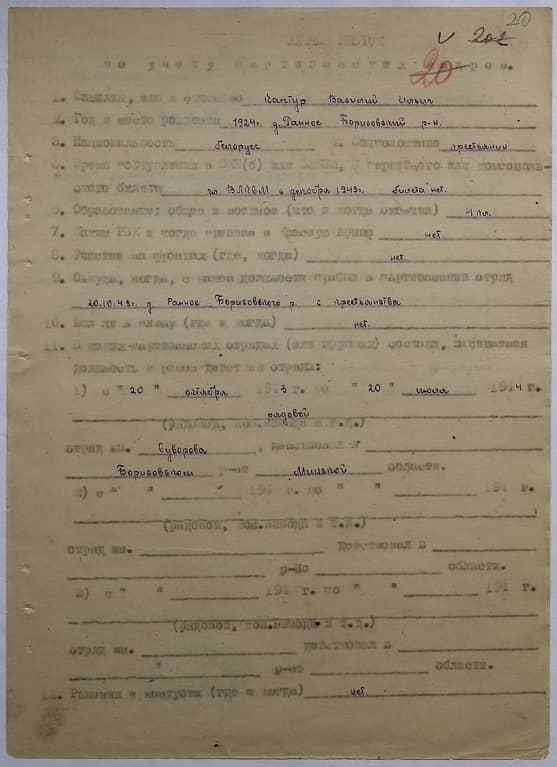 20
V 202
20
ЛИЧНЫЙ ЛИСТОК
по учету партизанских кадров.
1. Фамилия, имя и отчество Кантур Василий Ильич
2. Год и место рождения 1924г. д. Ранное Борисовский р-н.
3. Национальность белорусс 4. Соцположение крестьянин
5. Время вступления в ВКП(б) или ВЛКСМ, № партийного или комсомоль-
ского билета чл. ВЛКСМ с декабря 1943г. билета нет.
6. Образование: общее и военное (что и когда окончил) 4 кл.
7. Каким РВК и когда призван в Красную Армию нет.
8. Участие на фронтах (где, когда) нет.
9. Откуда, когда, с какой должности прибыл в партизанский отряд
20.10.43г. д. Ранное Борисовского р. с крестьянства
10. Был ли в плену (где и когда) нет.
11. В каких партизанских отрядах (или группах) состоял, занимаемая
должность и район действия отряда:
1) с " 20 " октября 1943 г. по " 20 " июля 1944 г.
рядовой
(рядовой, ком.взвода и т.д.)
отряд им. Суворова, действовал в
Борисовском р-не Минской области.
2) с " " 194 г. по " " 194 г.
(рядовой, ком.взвода и т.д.)
отряд им. действовал в
р-не области.
3) с " " 194 г. по " " 194 г.
(рядовой, ком.взвода и т.д.)
отряд им. действовал в
р-не области.
12. Ранения и контузии (где и когда) нет.